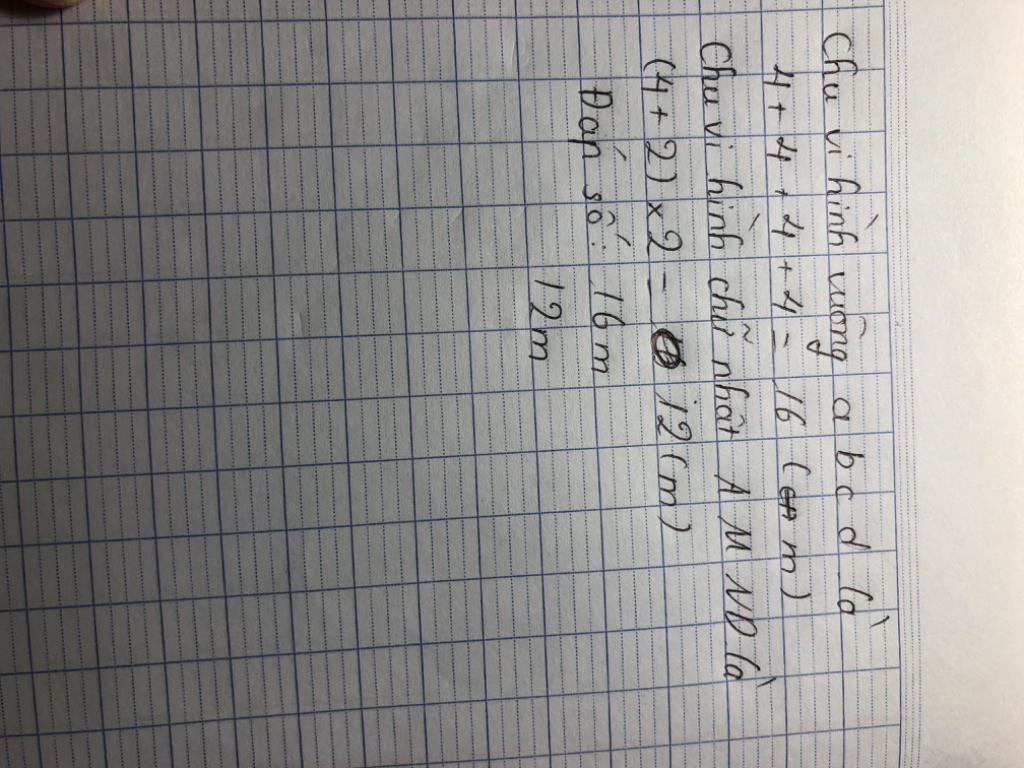 Chu vi hình vuông a b c d là
4 + 4 + 4 + 4 = 16 (m)
Chu vi hình chữ nhật A M N D là
(4 + 2) x 2 = 12 (m)
Đáp số: 16 m
12m